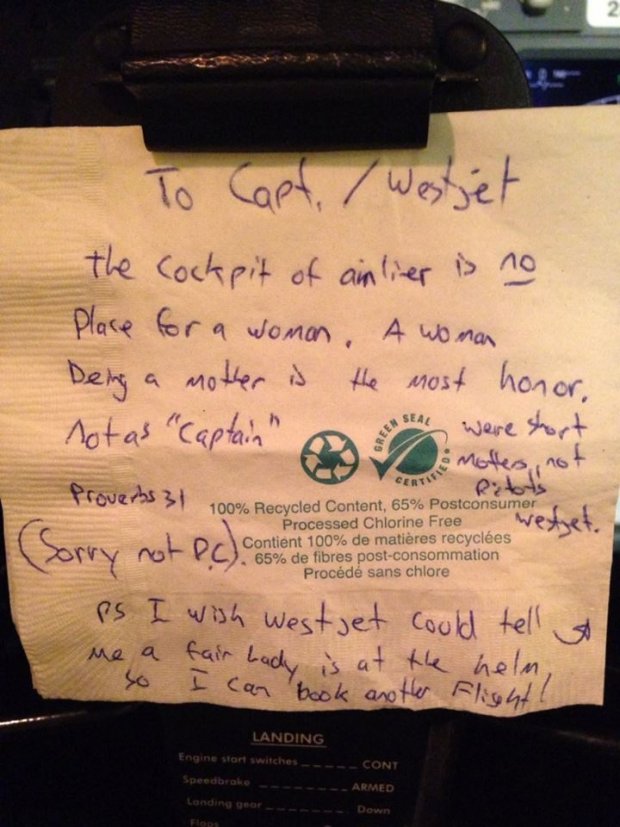 2
To Capt. / Westjet
the cockpit of airliner is no
Place for a woman. A woman
Being a mother is the most honor.
Not as "Captain"
were short
mothers, not
Pilots
westjet.
Proverbs 31
(Sorry not P.C).
GREEN SEAL
CERTIFIED
100% Recycled Content, 65% Postconsumer
Processed Chlorine Free
Contient 100% de matières recyclées
65% de fibres post-consommation
Procédé sans chlore
PS I wish westjet could tell
me a fair Lady is at the helm
so I can book another Flight!
LANDING
Engine start switches _ _ _ _ _ CONT
Speedbrake _ _ _ _ _ ARMED
Landing gear _ _ _ _ _ Down
Flaps